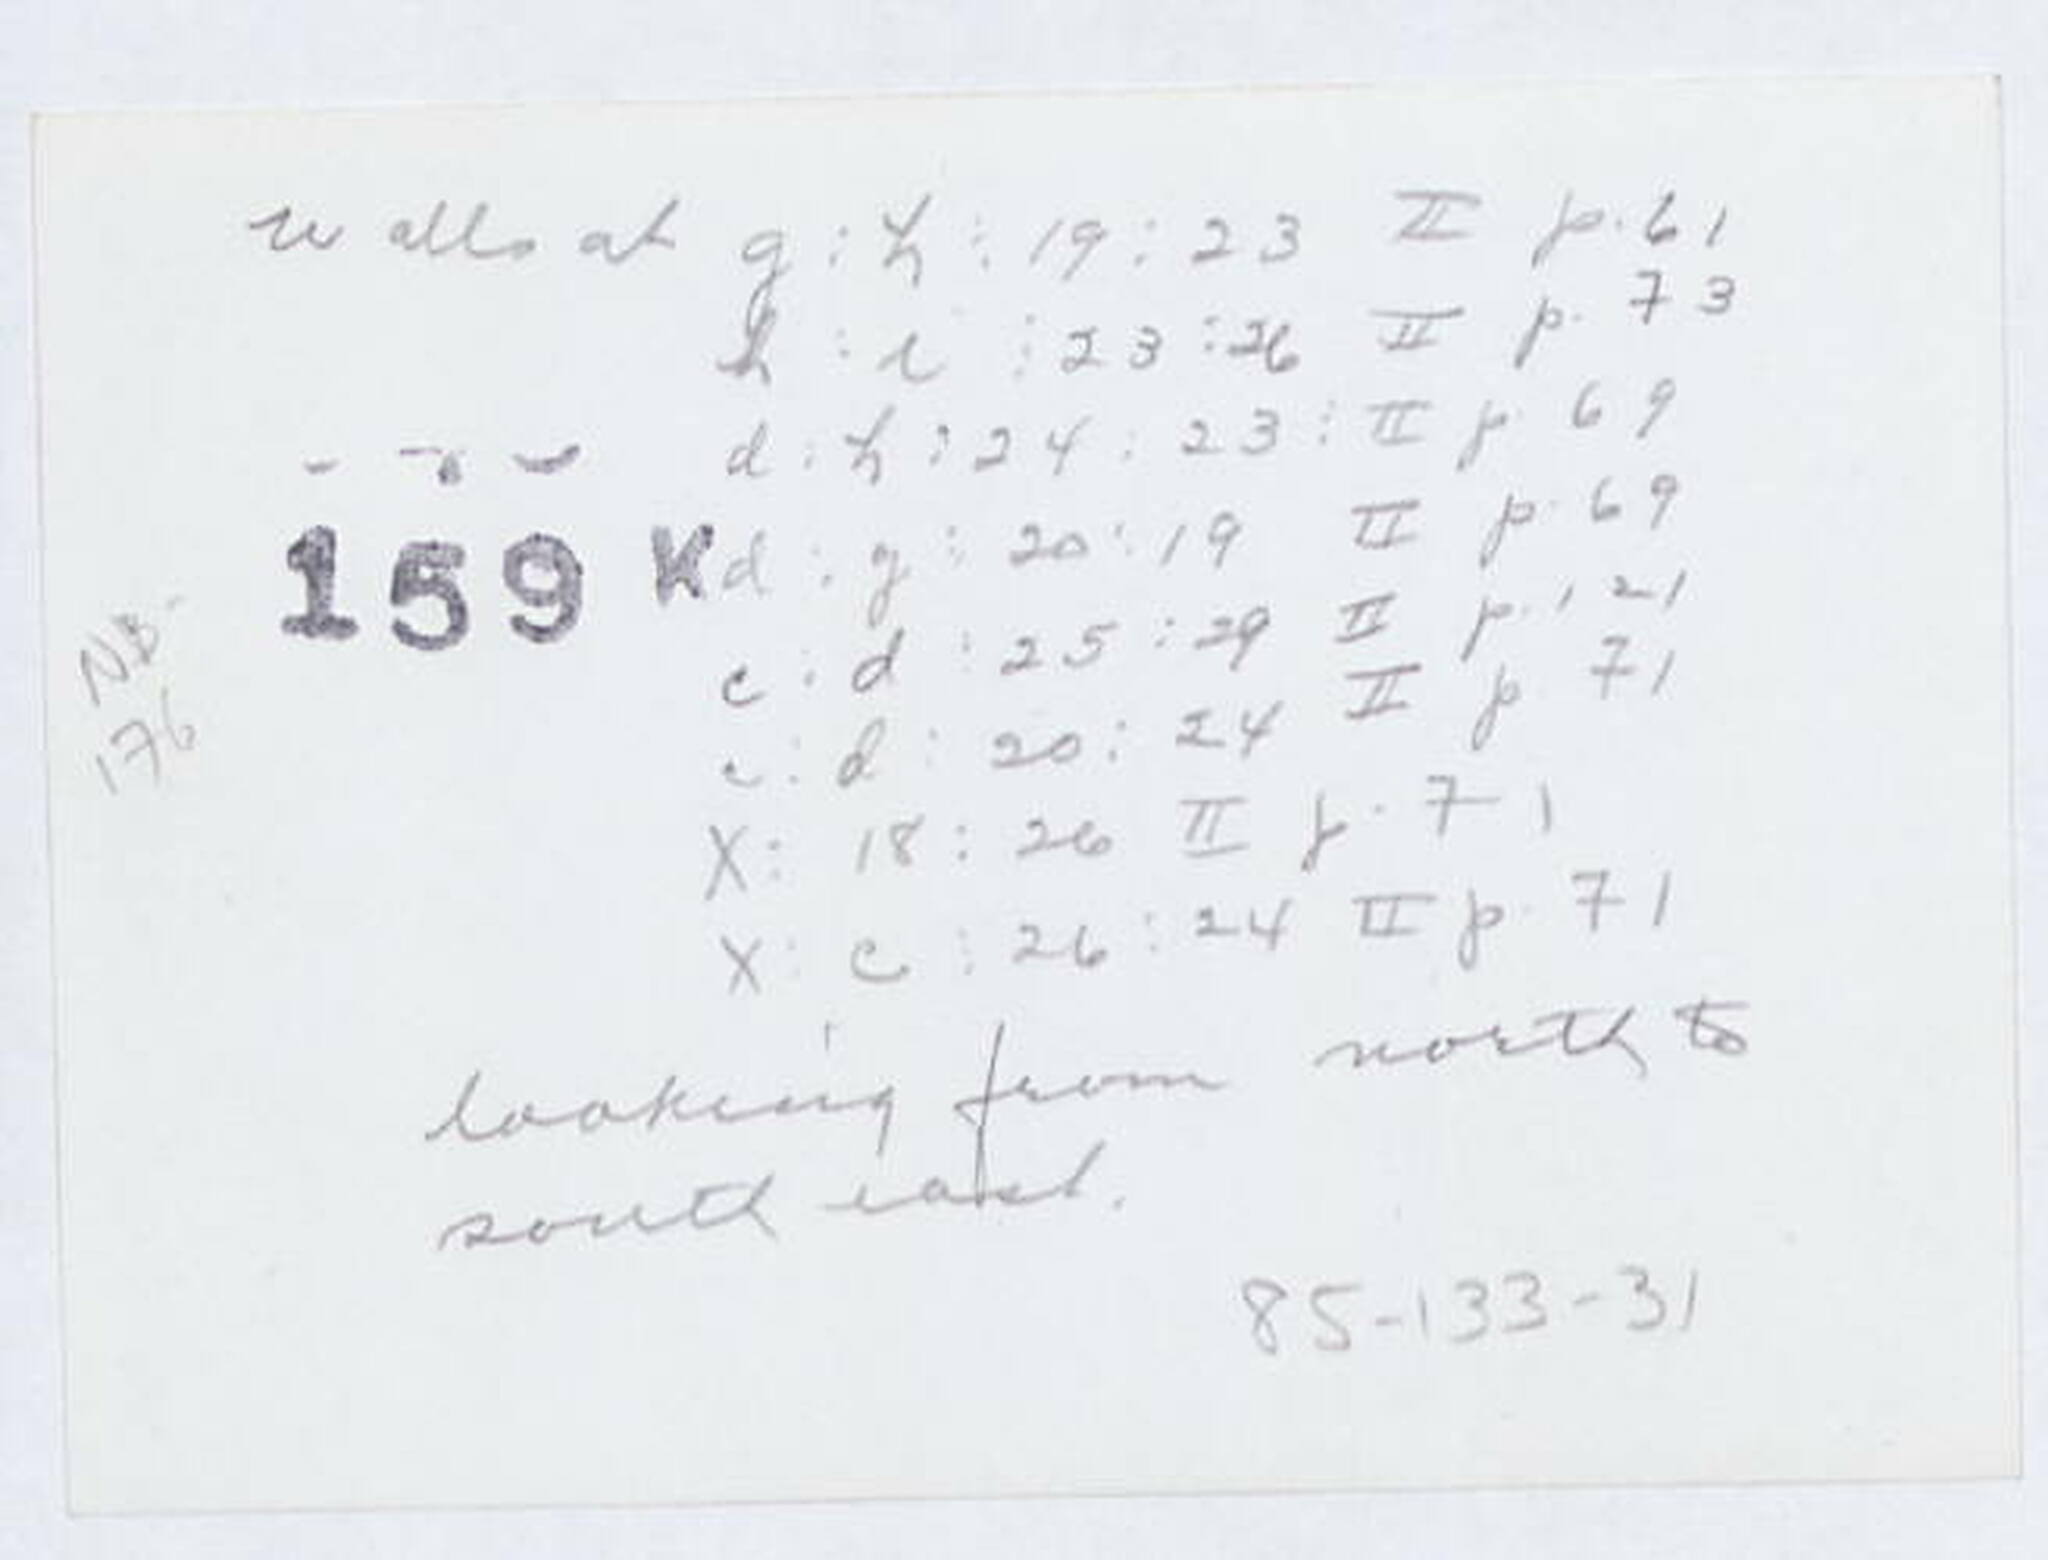 walls at g : h : 19 : 23 II p. 61
h : i : 23 : 26 II p. 73
d : h : 24 : 23 : II p. 69
159 K
d : g : 20 : 19 II p. 69
c : d : 25 : 29 II p. 121
c : d : 20 : 24 II p. 71
X : 18 : 26 II p. 71
X : c : 26 : 24 II p. 71
looking from north to
south east.
85-133-31
NB-
176